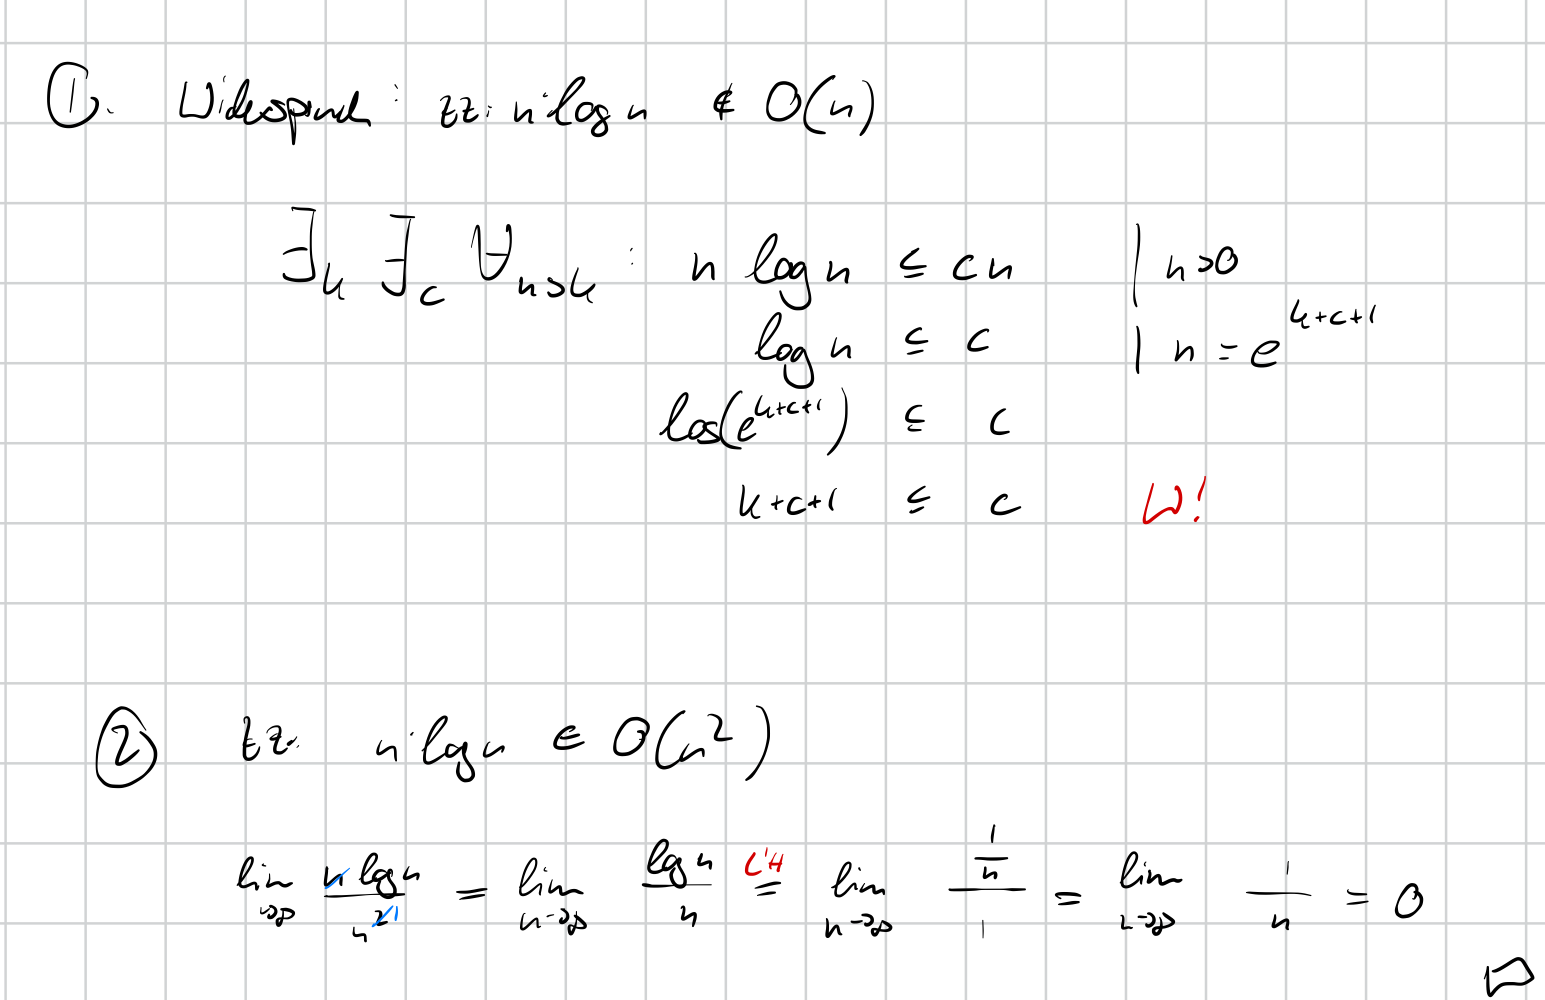 ①. Widerspruch: zz: n·log n ∉ O(n)
∃k ∃c ∀n>k : n log n ≤ cn | n>0
log n ≤ c | n = e^(k+c+1)
log(e^(k+c+1)) ≤ c
k+c+1 ≤ c W!
② zz: n·log n ∈ O(n²)
lim →∞ (n log n)/(n^2 1) = lim n→∞ (log n)/n =(L'H) lim n→∞ (1/n)/1 = lim n→∞ 1/n = 0
□